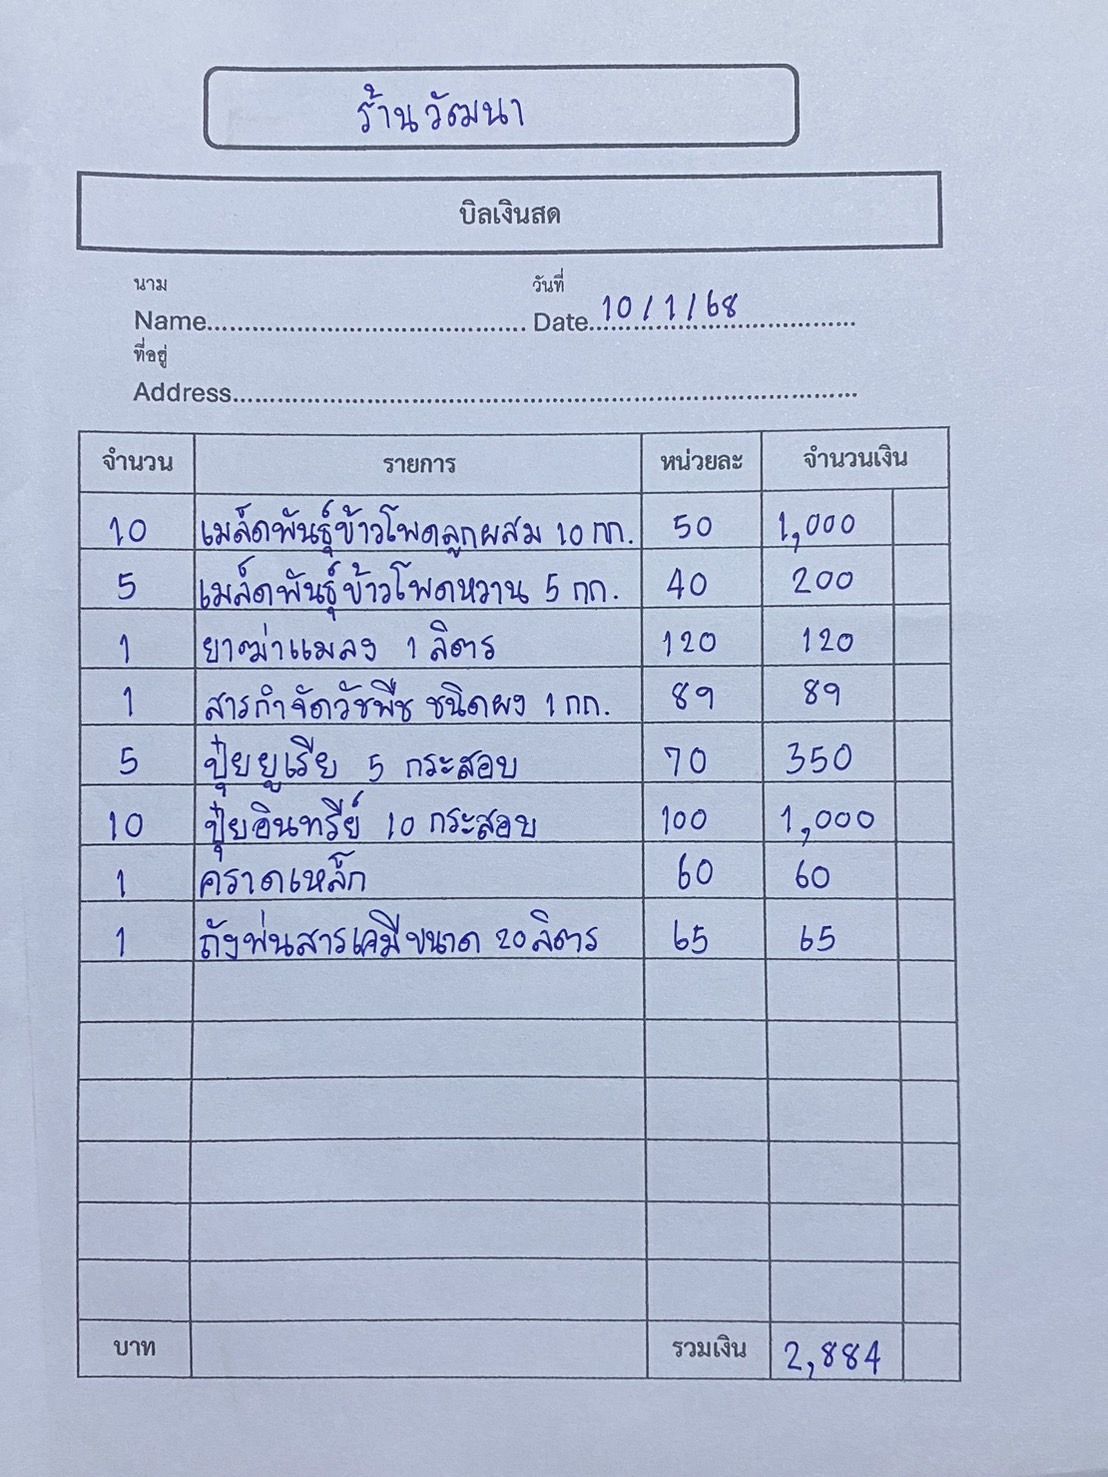 ร้านวัฒนา
บิลเงินสด
นาม วันที่
Name........................................... Date.... 10/1/68
ที่อยู่
Address....................................................................................
จำนวน รายการ หน่วยละ จำนวนเงิน
10 เมล็ดพันธุ์ข้าวโพดลูกผสม 10 กก. 50 1,000
5 เมล็ดพันธุ์ข้าวโพดหวาน 5 กก. 40 200
1 ยาฆ่าแมลง 1 ลิตร 120 120
1 สารกำจัดวัชพืช ชนิดผง 1 กก. 89 89
5 ปุ๋ยยูเรีย 5 กระสอบ 70 350
10 ปุ๋ยอินทรีย์ 10 กระสอบ 100 1,000
1 คราดเหล็ก 60 60
1 ถังพ่นสารเคมีขนาด 20 ลิตร 65 65
บาท รวมเงิน 2,884